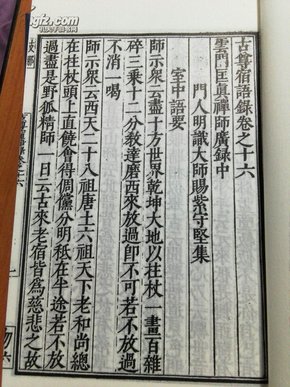 古尊宿語錄卷之十六
雲門匡眞禪師廣錄中
門人明識大師賜紫守堅集
室中語要
師示衆云盡十方世界乾坤大地以拄杖一畫百雜
碎三乘十二分教達磨西來放過即不可若不放過
不消一喝
師示衆云西天二十八祖唐土六祖天下老和尚總
在拄杖頭上直饒會得倜儻分明秪在半途若不放
過盡是野狐精師一日云古來老宿皆爲慈悲之故